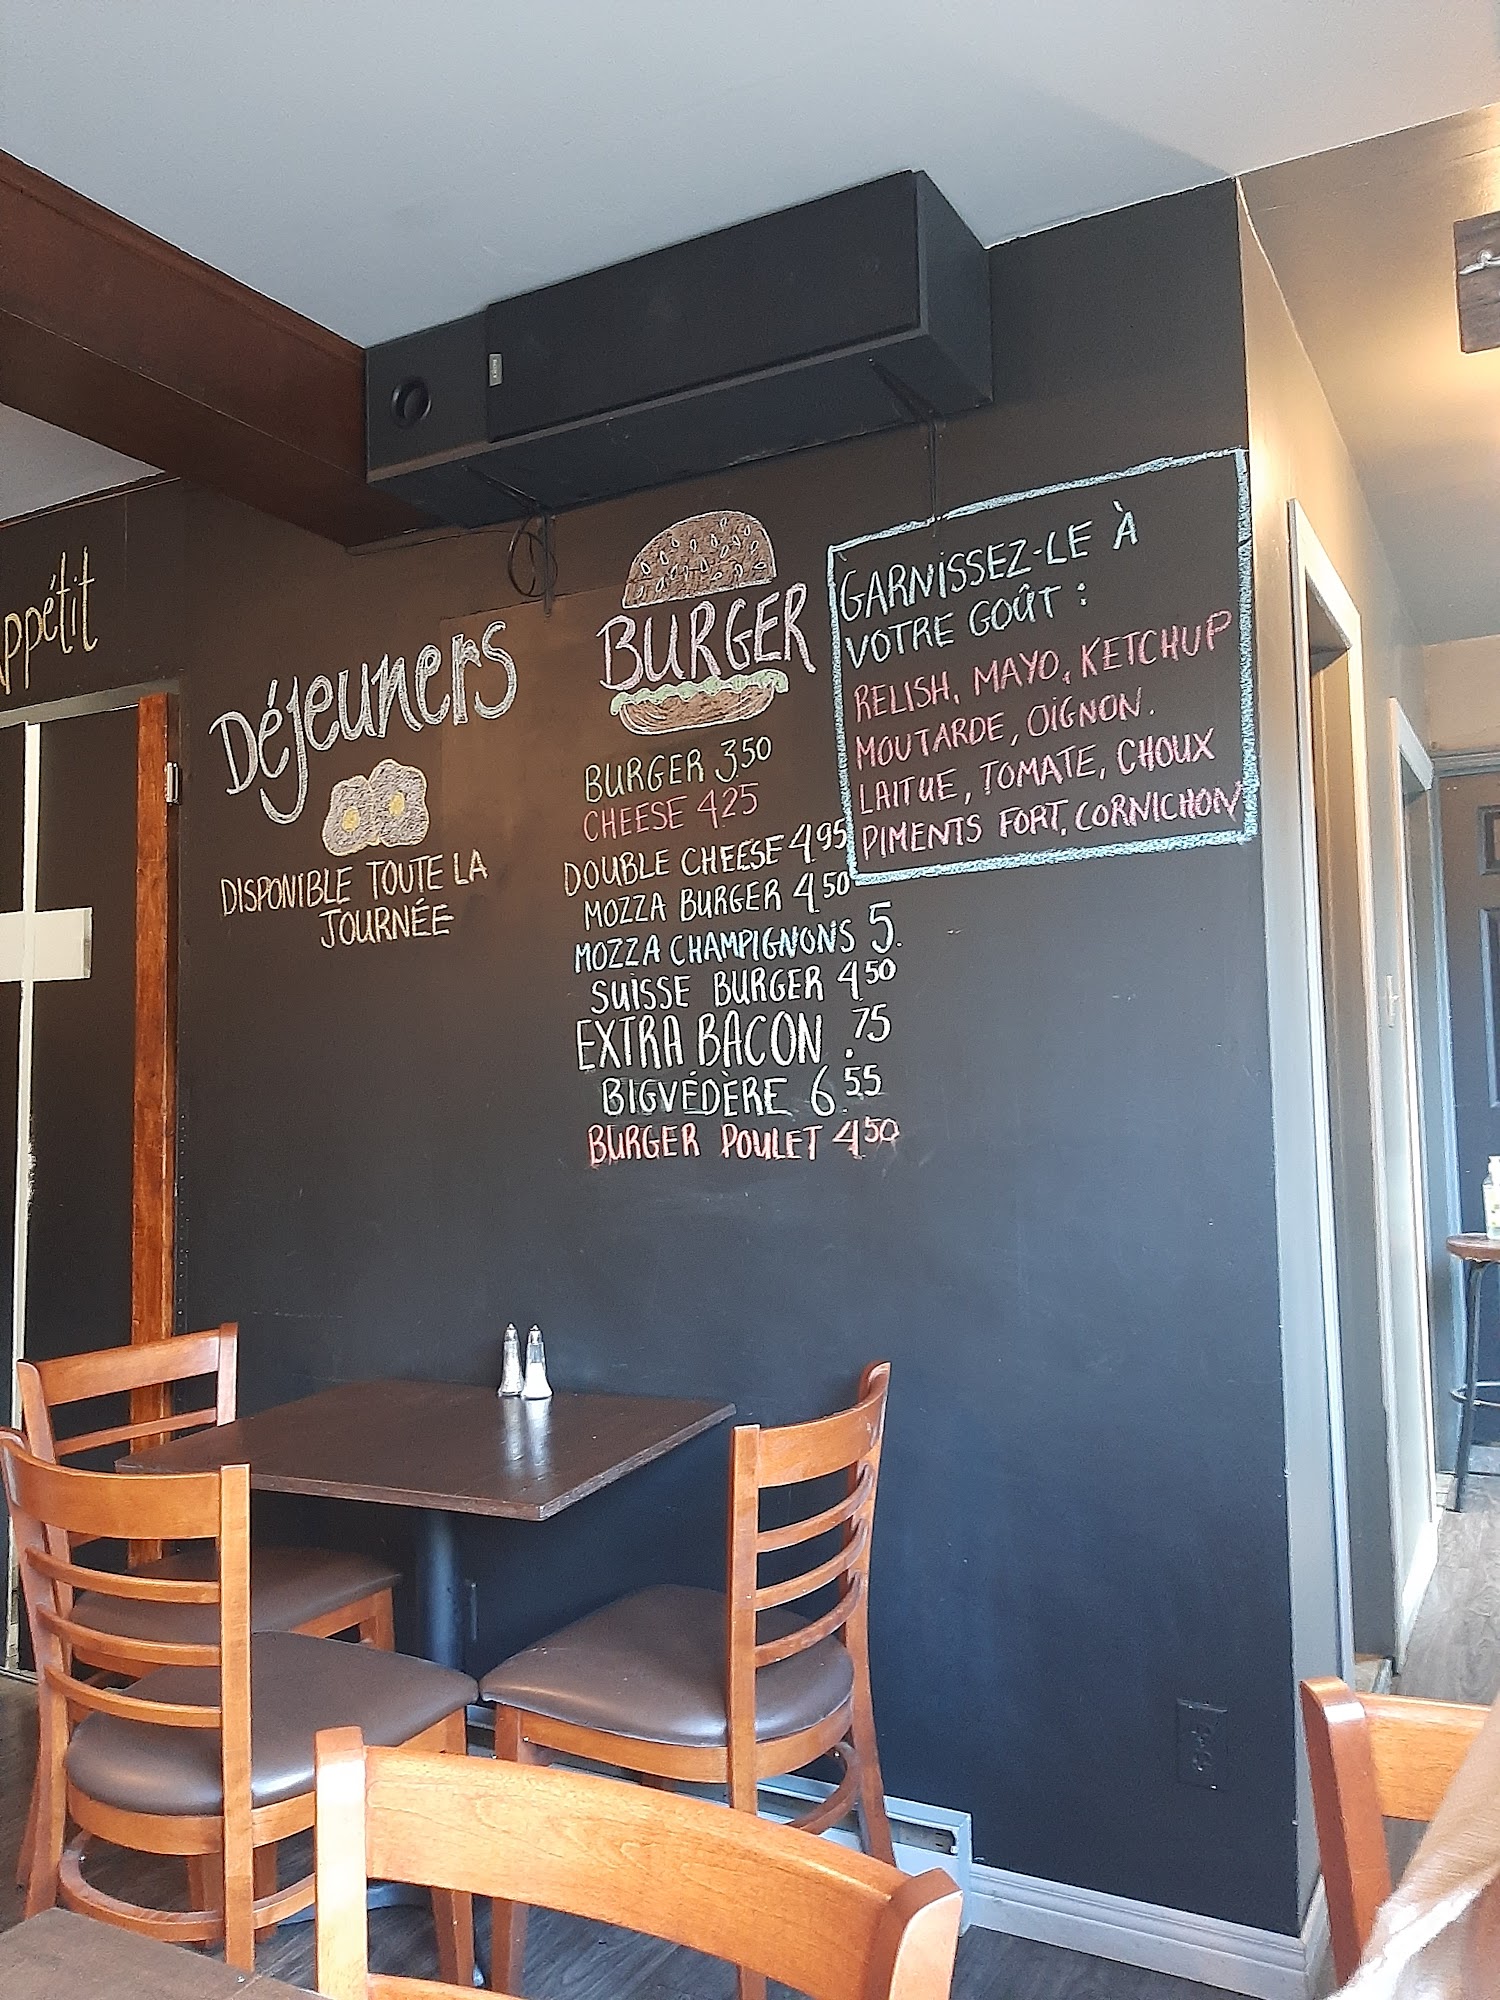 Appétit
Déjeuners
DISPONIBLE TOUTE LA
JOURNÉE
BURGER
BURGER 3.50
CHEESE 4.25
DOUBLE CHEESE 4.95
MOZZA BURGER 4.50
MOZZA CHAMPIGNONS 5.
SUISSE BURGER 4.50
EXTRA BACON .75
BIGVÉDÈRE 6.55
BURGER POULET 4.50
GARNISSEZ-LE À
VOTRE GOÛT :
RELISH, MAYO, KETCHUP
MOUTARDE, OIGNON.
LAITUE, TOMATE, CHOUX
PIMENTS FORT, CORNICHON